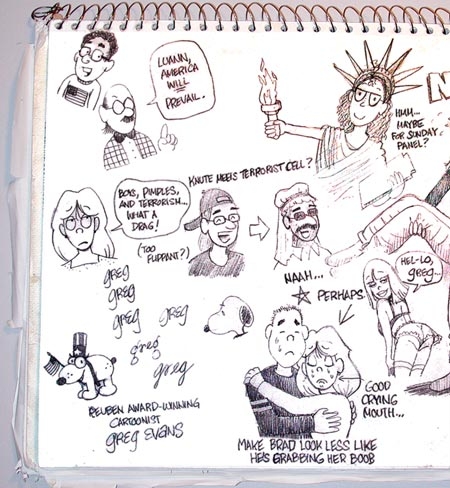 LUANN,
AMERICA
WILL
PREVAIL.
HMM...
MAYBE
FOR SUNDAY
PANEL?
N
KNUTE MEETS TERRORIST CELL?
BOYS, PIMPLES,
AND TERRORISM...
WHAT A
DRAG!
(TOO
FLIPPANT?)
NAAH...
PERHAPS
HEL-LO,
greg...
greg
greg
greg
greg
greg
greg
GOOD
CRYING
MOUTH...
REUBEN AWARD-WINNING
CARTOONIST
greg EVANS
MAKE BRAD LOOK LESS LIKE
HE'S GRABBING HER BOOB